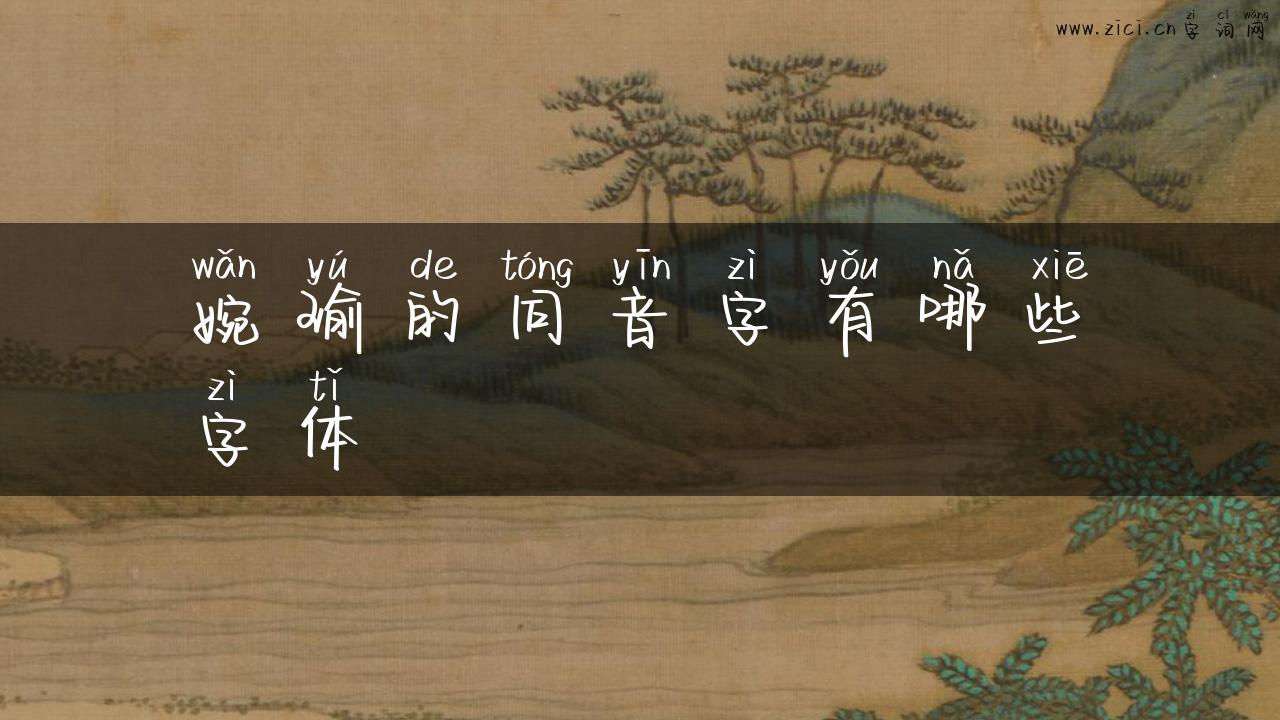 zì cí wǎng
www.zici.cn 字词网
wǎn yú de tóng yīn zì yǒu nǎ xiē
婉瑜的同音字有哪些
zì tǐ
字体